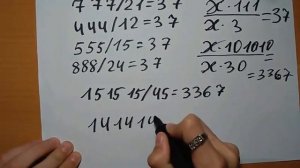 777/21=37
444/12=37
555/15=37
888/24=37
x·111
x·3
=37
x·101010
x·30
=
=3367
151515/45=3367
14141